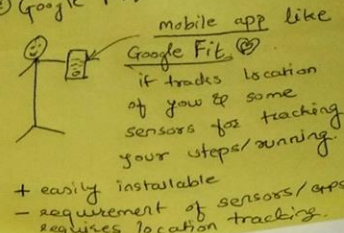 Google
mobile app like
Google Fit
it tracks location
of you & some
sensors for tracking
your steps/running.
+ easily installable
- requirement of sensors/apps
requires location tracking.